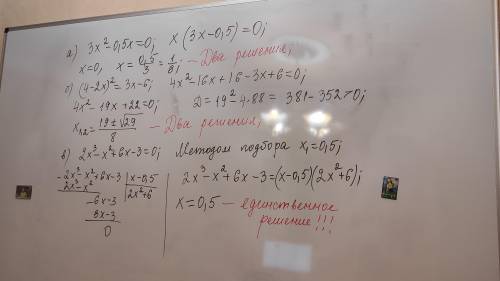 а) 3x²-0,5x=0; x(3x-0,5)=0;
x=0, x=0,5/3=1/6; - Два решения;
б) (4-2x)²=3x-6; 4x²-16x+16-3x+6=0;
4x²-19x+22=0; D=19²-4·88=381-352>0;
x₁,₂=(19±√29)/8 - Два решения;
в) 2x³-x²+6x-3=0; Методом подбора x₁=0,5;
-2x³-x²+6x-3 | x-0,5
2x³-x² | 2x²+6
-6x-3
6x-3
0
2x³-x²+6x-3=(x-0,5)(2x²+6);
x=0,5 - единственное
решение!!!